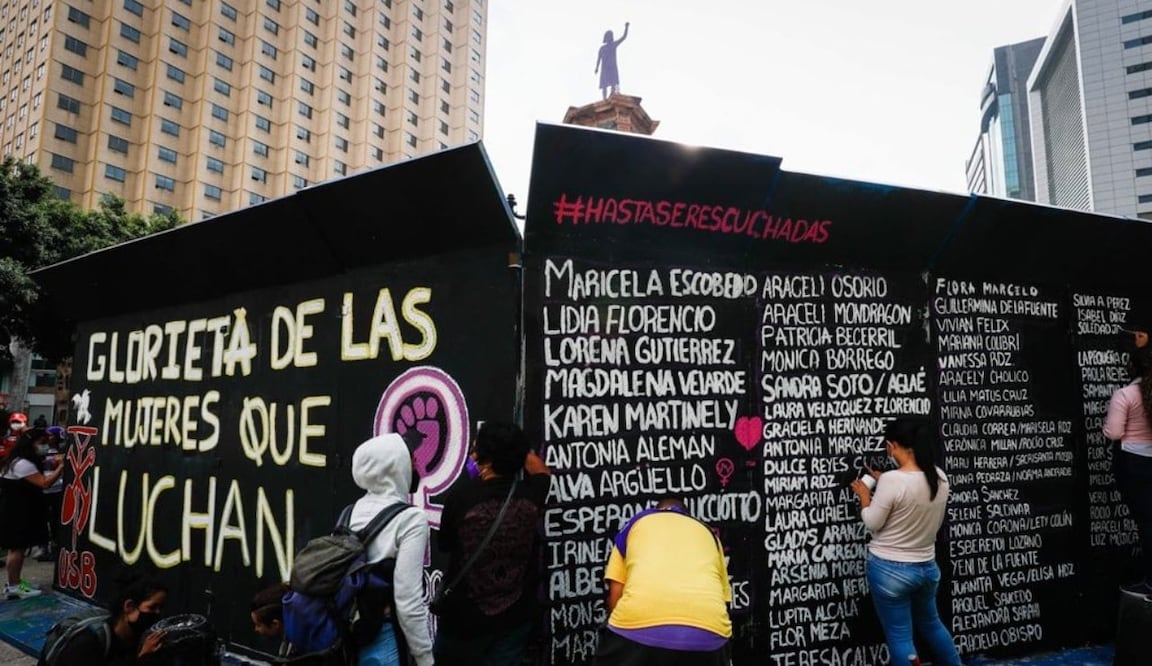 GLORIETA DE LAS
MUJERES QUE
LUCHAN
USB
#HASTASERESCUCHADAS
MARICELA ESCOBEDO
LIDIA FLORENCIO
LORENA GUTIERREZ
MAGDALENA VELARDE
KAREN MARTINELY
ANTONIA ALEMÁN
ALVA ARGÜELLO
IRINEA
ARACELI OSORIO
ARACELI MONDRAGON
PATRICIA BECERRIL
MONICA BORREGO
SANDRA SOTO/AGLAÉ
LAURA VELAZQUEZ FLORENCIO
GRACIELA
ANTONIA MARQUEZ
DULCE REYES
MIRIAM RDZ
MARGARITA
LAURA CURIEL
GLADYS ARANZA
MARIA CARREÓN
ARSENIA
MARGARITA
LUPITA ALCALÁ
FLOR MEZA
TERESA CALVO
FLORA MARCELO
GUILLERMINA DE LA FUENTE
VIVIAN FELIX
MARIANA COLIBRÍ
VANESSA RDZ
ARACELY CHOLICO
LILIA MATUS CRUZ
MIRNA COVARRUBIAS
CLAUDIA CORREA/MARISELA RDZ
VERÓNICA MILLAN/ROCÍO CRUZ
MARU HERRERA/SACRISANTA MOSSO
JUANA PEDRAZA/NORMA ANDRADE
SANDRA SÁNCHEZ
SELENE SALDIVAR
MONICA CORONA/LETY COLIN
ESBEREYDI LOZANO
YENI DE LA FUENTE
JUANITA VEGA/ELISA HDZ
RAQUEL SAUCEDO
ALEJANDRA SARAHÍ
GRACIELA OBISPO
SILVIA A. PEREZ
ISABEL DÍAZ
SOLEDAD
PAOLA REYES
LUZ MOJICA